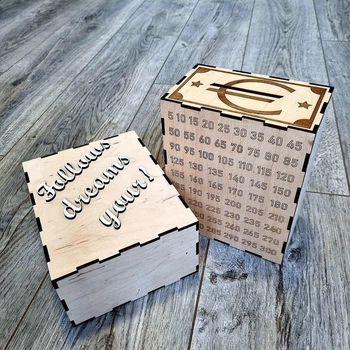 Follows
dreams
your!
€
5 10 15 20 25 30 35 40 45
50 55 60 65 70 75 80 85
90 95 100 105 110 115 120
125 130 135 140 145 150
155 160 165 170 175 180
190 195 200 205 210
220 225 230 235 240
250 255 260 265 270
285 290 295 300